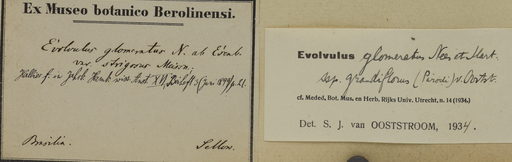 Ex Museo botanico Berolinensi.
Evolvulus glomeratus N. ab Esenb.
var. strigosus Meissn.
Hallier f. in Jahrb. Hamb. wiss. Anst. XVI, Beiheft 3 (Jun 1899) p. 21.
Brasilia. Sellow.
Evolvulus glomeratus Nees et Mart.
ssp. grandiflorus (Parodi) v. Ooststr.
cf. Meded. Bot. Mus. en Herb. Rijks Univ. Utrecht, n. 14 (1934.)
Det. S. J. van OOSTSTROOM, 1934.